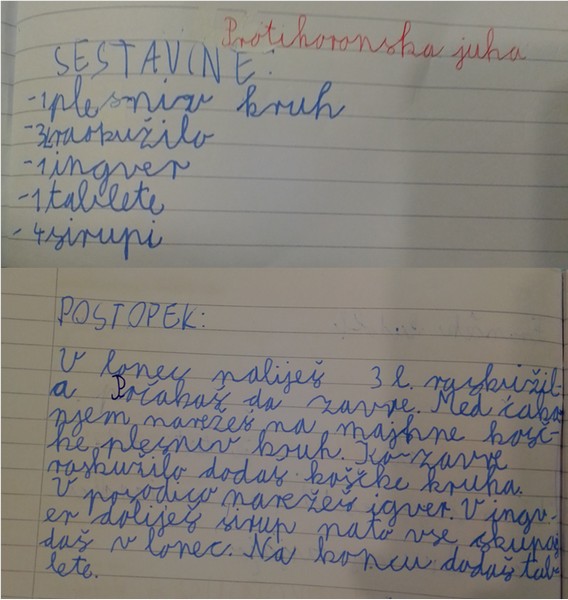 Protikoronska juha
SESTAVINE:
-1 plesniv kruh
-3l raskužilo
-1 ingver
-1 tablete
-4 sirupi
POSTOPEK:
V lonec naliješ 3 l. raskužil-
a Počakaš da zavre. Med čaka
njem narežeš na majhne košč-
ke plesniv kruh. Ko zavre
raskužilo dodaš koščke kruha.
V posodico narežeš igver. V ingv-
er doliješ sirup nato vse skupaj
daš v lonec. Na koncu dodaš tab-
lete.